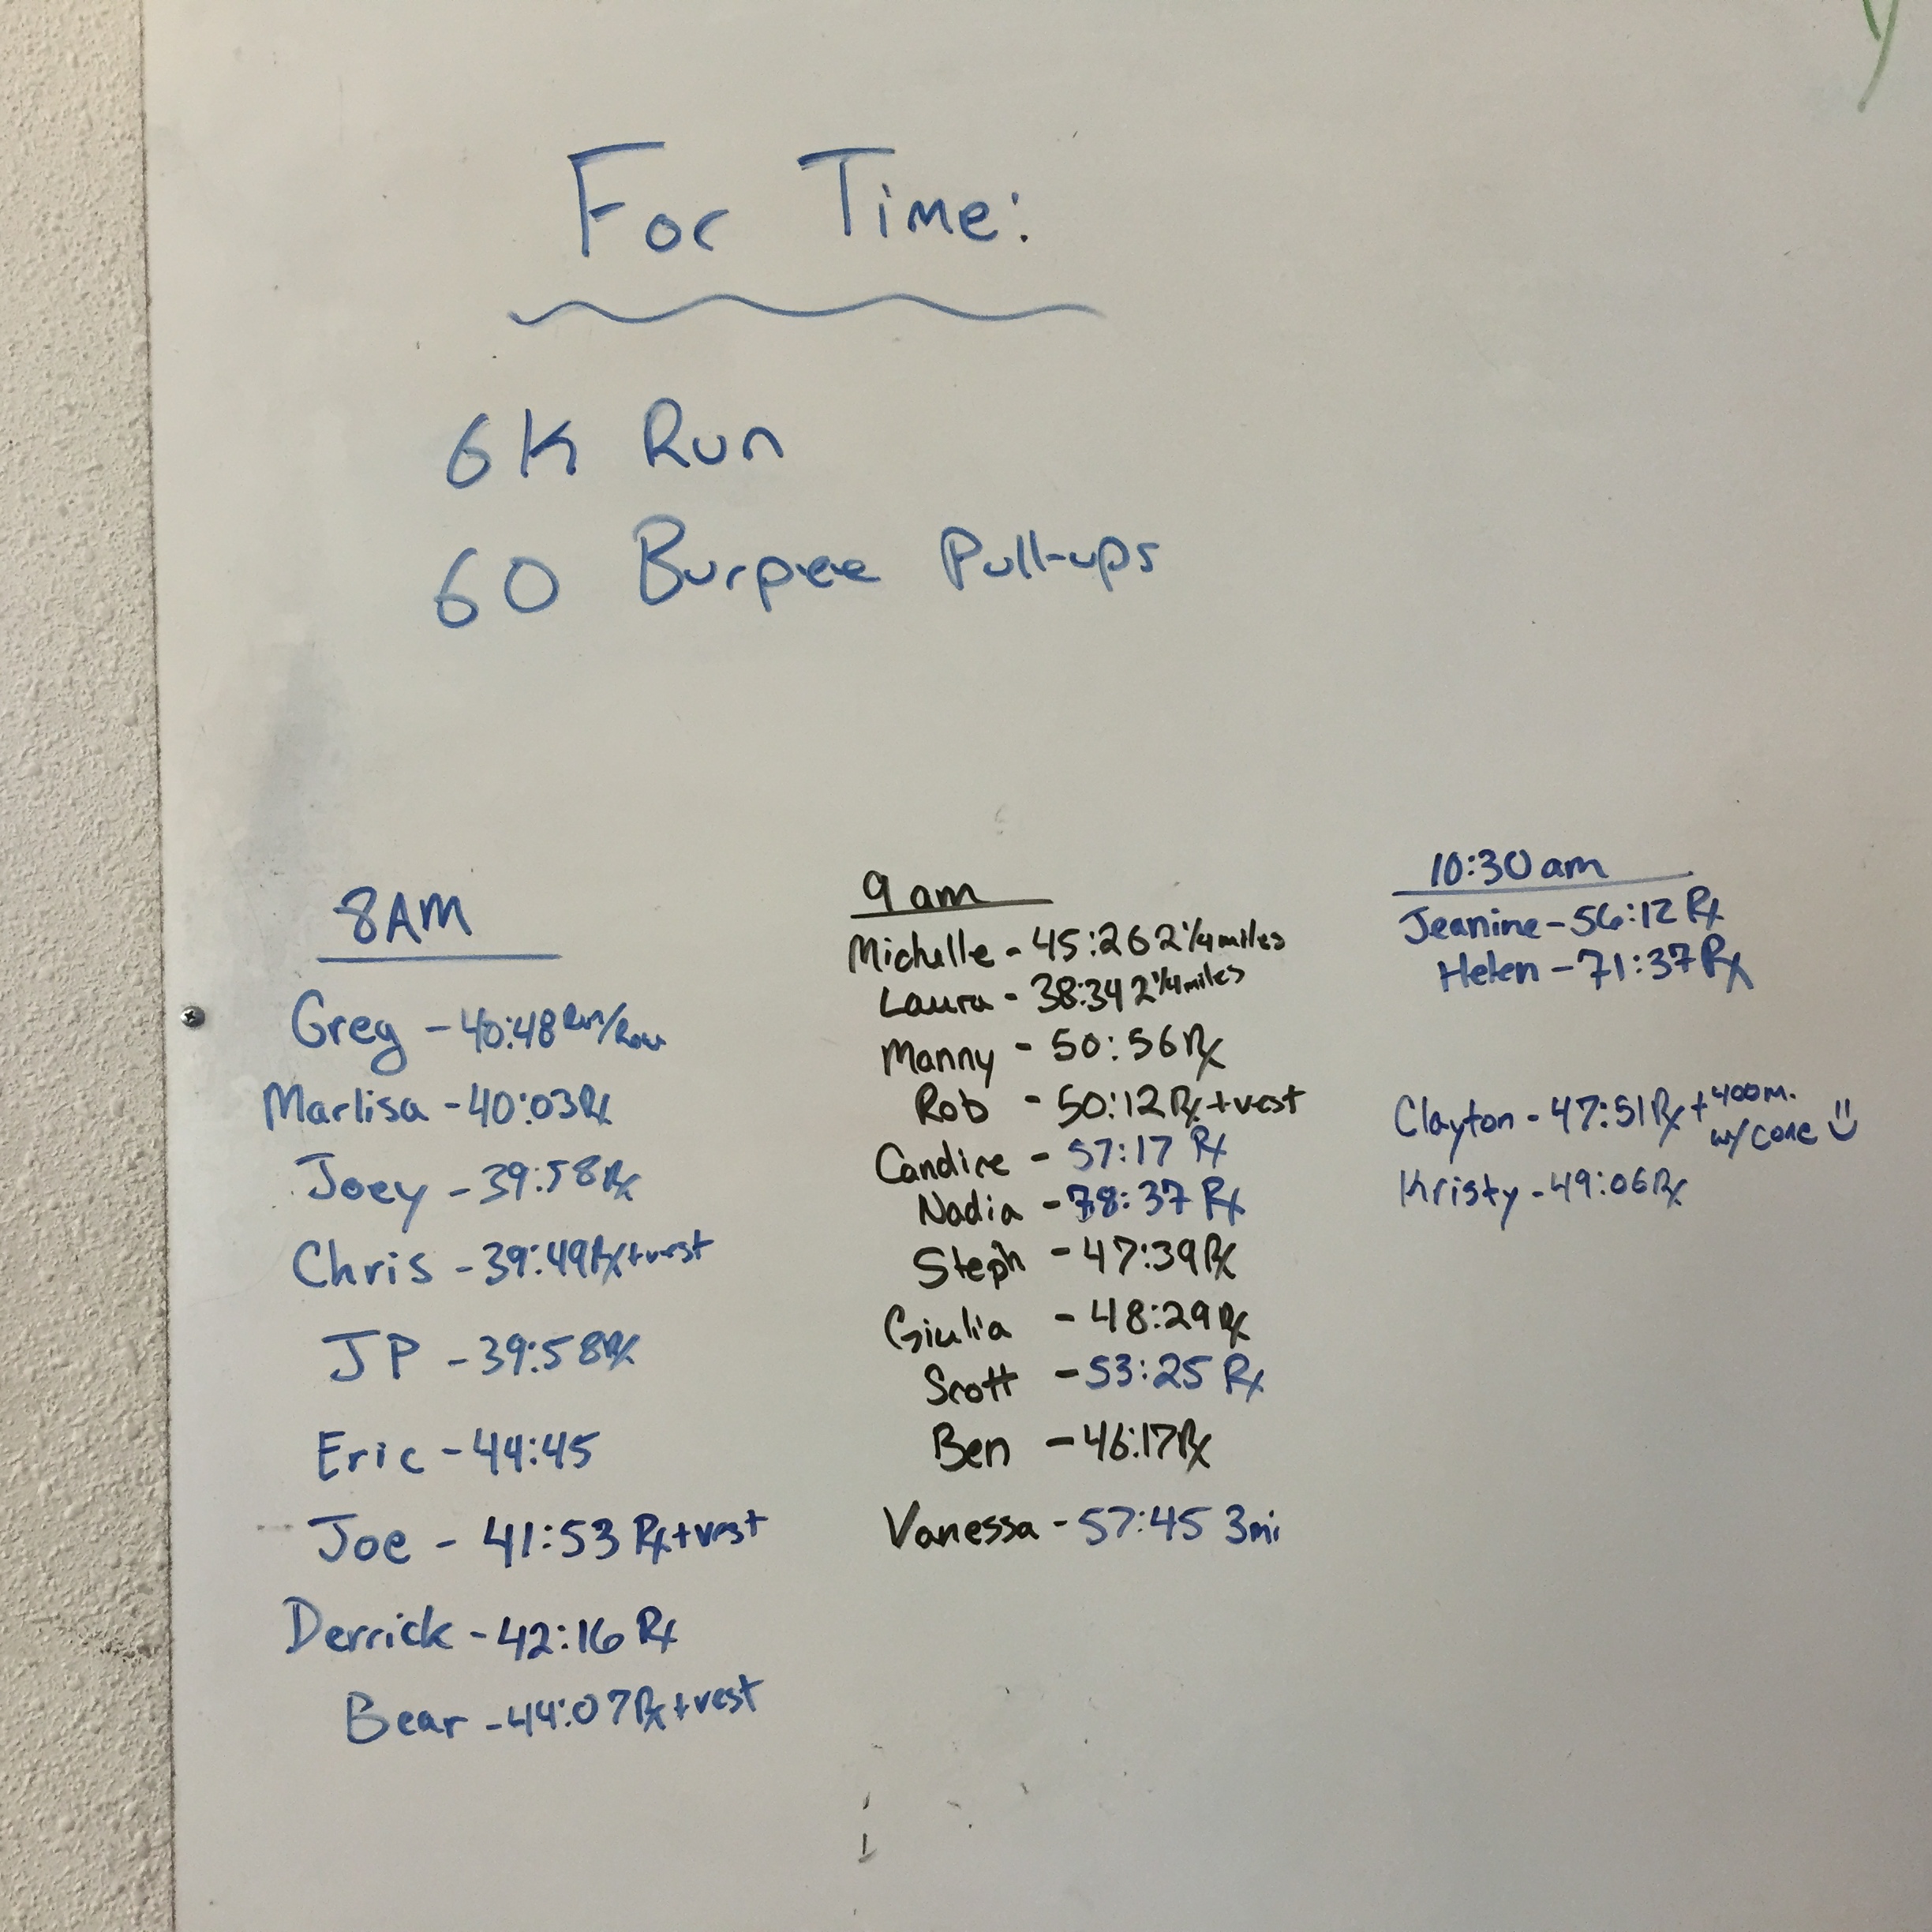 For Time:
6K Run
60 Burpee Pull-ups
8AM
Greg - 40:48 Run/Row
Marlisa - 40:03 Rx
Joey - 39:58 Rx
Chris - 39:49 Rx+vest
JP - 39:58 Rx
Eric - 44:45
Joe - 41:53 Rx+vest
Derrick - 42:16 Rx
Bear - 44:07 Rx+vest
9am
Michelle - 45:26 2 1/4 miles
Laura - 38:34 2 1/4 miles
Manny - 50:56 Rx
Rob - 50:12 Rx+vest
Candice - 57:17 Rx
Nadia - 78:37 Rx
Steph - 47:39 Rx
Giulia - 48:29 Rx
Scott - 53:25 Rx
Ben - 46:17 Rx
Vanessa - 57:45 3mi
10:30am
Jeanine - 56:12 Rx
Helen - 71:37 Rx
Clayton - 47:51 Rx + 400m.
w/ cone
Kristy - 49:06 Rx